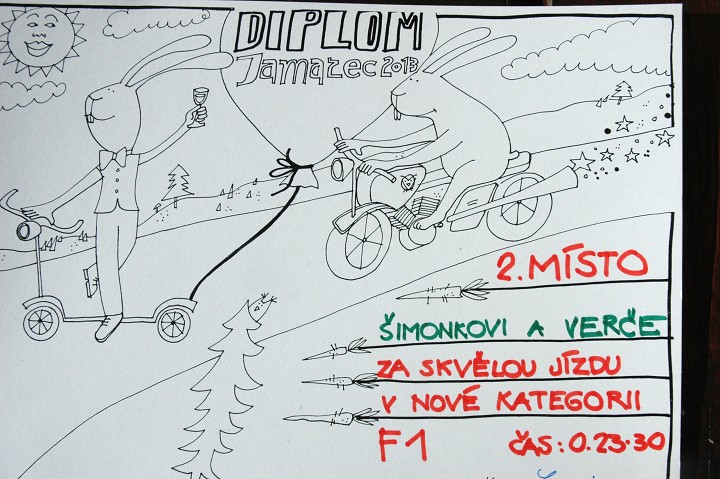 DIPLOM
Jamatec 2013
2. MÍSTO
ŠIMONKOVI A VERČE
ZA SKVĚLOU JÍZDU
V NOVÉ KATEGORII
F1 ČAS: 0.23.30